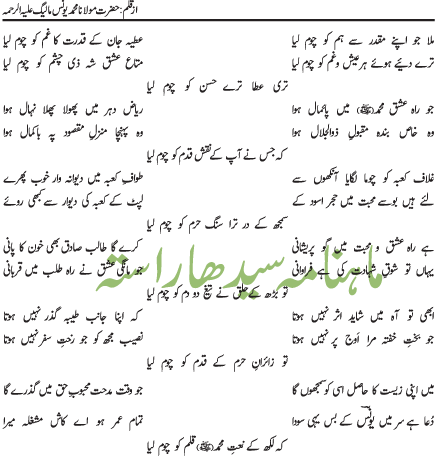 از قلم: حضرت مولانا محمد یونس مالیگ علیہ الرحمہ
ملا جو اپنے مقدر سے ہم کو چوم لیا
عطیہ جان کے قدرت کا غم کو چوم لیا
ترے دیئے ہوئے ہر عیش و غم کو چوم لیا
متاع عشق شہ ذی حشم کو چوم لیا
تری عطا ترے حسن کو چوم لیا
جو راہ عشق محمد (ﷺ) میں پائمال ہوا
ریاض دہر میں پھولا پھلا نہال ہوا
وہ خاص بندہ مقبول ذوالجلال ہوا
وہ پہنچا منزل مقصود پہ باکمال ہوا
کہ جس نے آپ کے نقش قدم کو چوم لیا
غلاف کعبہ کو چوما لگایا آنکھوں سے
طواف کعبہ میں دیوانہ وار خوب پھرے
لئے ہیں بوسے محبت میں حجر اسود کے
لپٹ کے کعبہ کی دیوار سے کبھی روئے
سمجھ کے در ترا سنگ حرم کو چوم لیا
ہے راہ عشق و محبت میں گو پریشانی
کرے گا طالب صادق بھی خون کا پانی
یہاں تو شوق شہادت کی ہے فراوانی
جو مانگی عشق نے راہ طلب میں قربانی
تو بڑھ کے حلق نے تیغ دو دم کو چوم لیا
ماہنامہ سیدھا راستہ
ابھی تو آہ میں شاید اثر نہیں ہوتا
کہ اپنا جانب طیبہ گذر نہیں ہوتا
جو بخت خفتہ مرا اوج پر نہیں ہوتا
نصیب مجھ کو جو رخت سفر نہیں ہوتا
تو زائران حرم کے قدم کو چوم لیا
میں اپنی زیست کا حاصل اسی کو سمجھوں گا
جو وقت مدحت محبوب حق میں گذرے گا
دعا ہے سر میں یونس کے بس یہی سودا
تمام عمر ہو اے کاش مشغلہ میرا
کہ لکھ کے نعت محمد (ﷺ) قلم کو چوم لیا